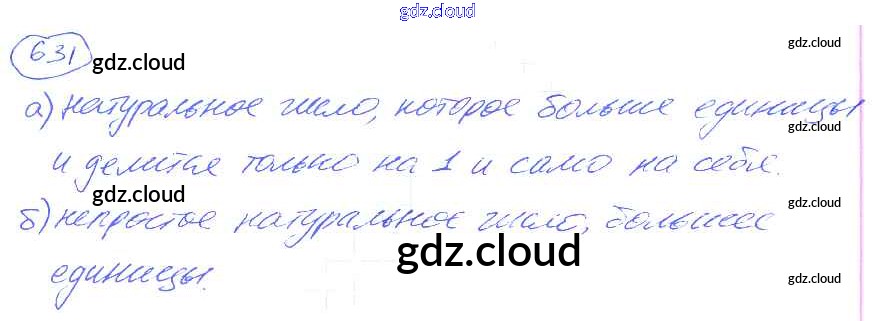 gdz.cloud
631 gdz.cloud gdz.cloud
а) натуральное число, которое больше единицы
gdz.cloud
и делится только на 1 и само на себя.
gdz.cloud gdz.cloud
б) непростое натуральное число, большее
gdz.cloud
единицы.
gdz.cloud